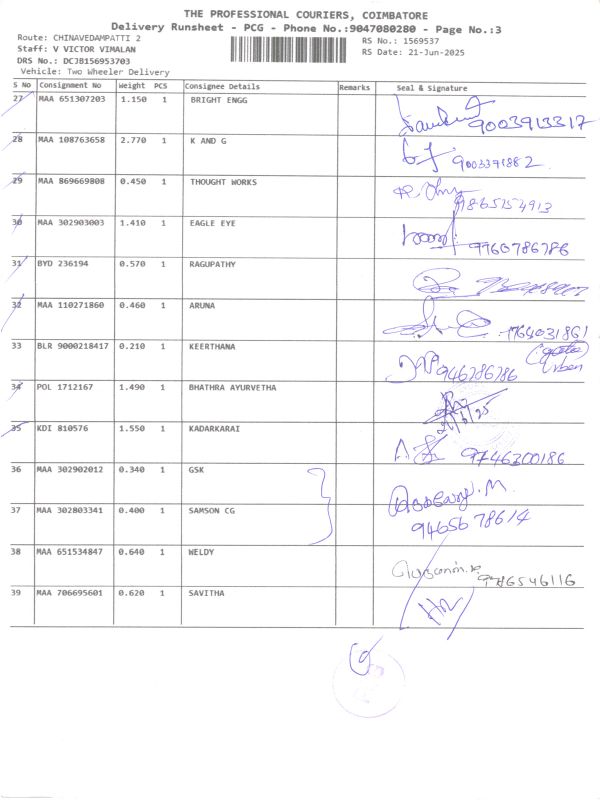 THE PROFESSIONAL COURIERS, COIMBATORE
Delivery Runsheet - PCG - Phone No.:9047080280 - Page No.:3
Route: CHINAVEDAMPATTI 2
RS No.: 1569537
Staff: V VICTOR VIMALAN
RS Date: 21-Jun-2025
DRS No.: DCJB156953703
Vehicle: Two Wheeler Delivery
S No Consignment No Weight PCS Consignee Details Remarks Seal & Signature
27 MAA 651307203 1.150 1 BRIGHT ENGG 9003913317
28 MAA 108763658 2.770 1 K AND G 9003391882
29 MAA 869669808 0.450 1 THOUGHT WORKS 9865154913
30 MAA 302903003 1.410 1 EAGLE EYE 9760786786
31 BYD 236194 0.570 1 RAGUPATHY
32 MAA 110271860 0.460 1 ARUNA 7764031861
33 BLR 9000218417 0.210 1 KEERTHANA 946786786
34 POL 1712167 1.490 1 BHATHRA AYURVETHA 21/6/25
35 KDI 810576 1.550 1 KADARKARAI 9746300186
36 MAA 302902012 0.340 1 GSK
37 MAA 302803341 0.400 1 SAMSON CG 9465678614
38 MAA 651534847 0.640 1 WELDY 9786546116
39 MAA 706695601 0.620 1 SAVITHA